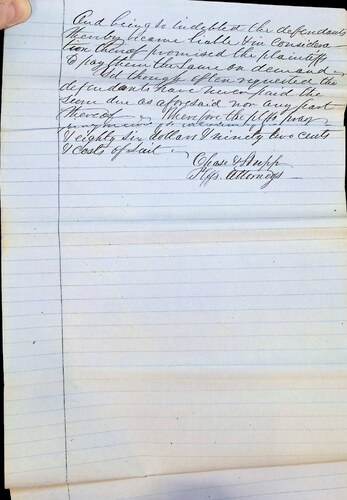 And being so indebted the defendants
thereby became liable & in considera
tion thereof promised the plaintiffs
to pay them the same on demand.
Yet though often requested the
defendants have never paid the
sum due as aforesaid nor any part
thereof. Therefore the plffs pray
judgment
& eighty six dollars & ninety two cents
& costs of suit.
Chase &
Plffs. Attorneys